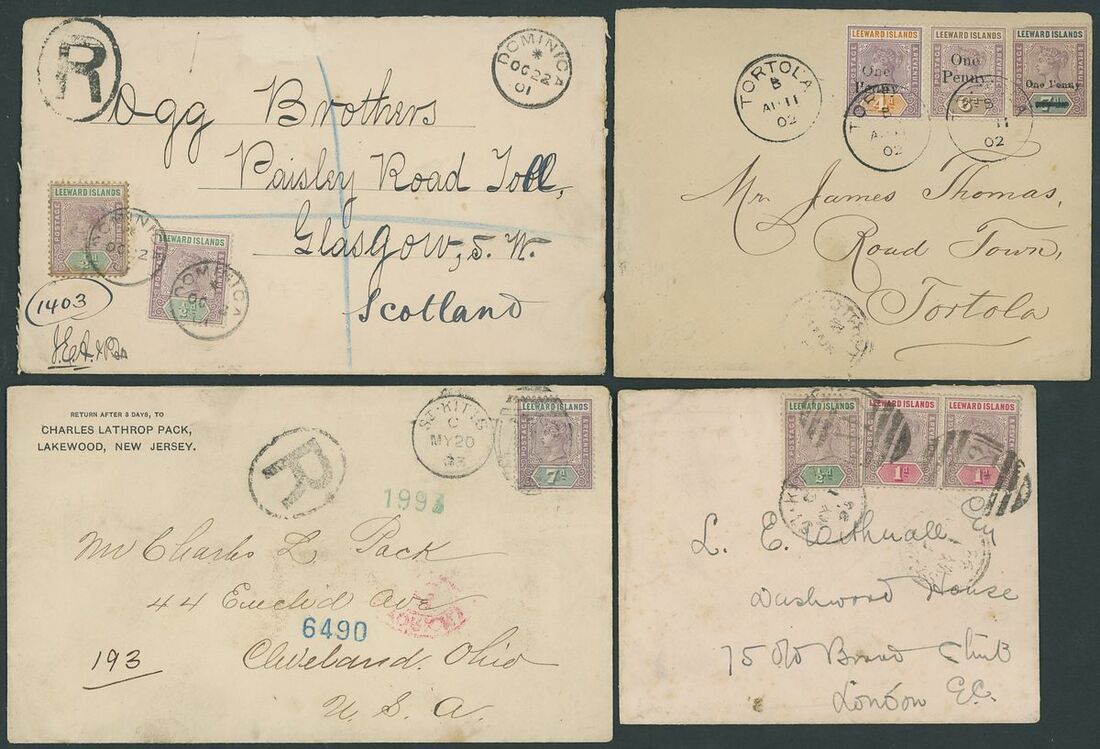 R
DOMINICA
*
OC 22
01
Ogg Brothers
Paisley Road Toll,
Glasgow, S. W.
Scotland
LEEWARD ISLANDS
POSTAGE
DOMINICA
LEEWARD ISLANDS
½d
DOMINICA
*
OC
01
1403
LEEWARD ISLANDS
POSTAGE & REVENUE
One Penny
LEEWARD ISLANDS
POSTAGE & REVENUE
One Penny
LEEWARD ISLANDS
POSTAGE & REVENUE
One Penny
7d
TORTOLA
B
AP 11
02
TORTOLA
B
02
B
11
02
Mr. James Thomas,
Road Town,
Tortola
RETURN AFTER 3 DAYS, TO
CHARLES LATHROP PACK,
LAKEWOOD, NEW JERSEY.
R
ST. KITTS
C
MY 20
LEEWARD ISLANDS
POSTAGE & REVENUE
7d
1993
Mr Charles L. Pack
44 Euclid Ave
6490
Cleveland. Ohio
193
U. S. A.
LEEWARD ISLANDS
½d
LEEWARD ISLANDS
POSTAGE & REVENUE
1d
LEEWARD ISLANDS
1d
L. E.
Dashwood House
75 Old Broad
London E.C.